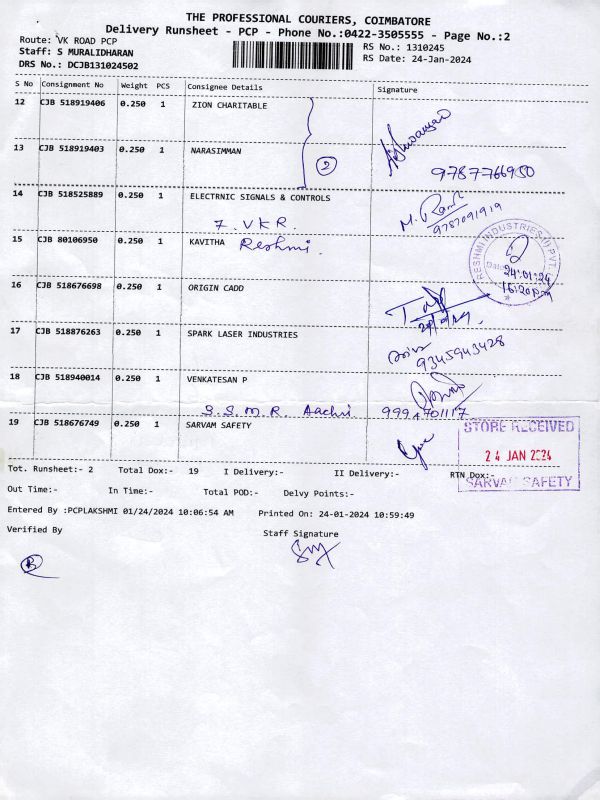 THE PROFESSIONAL COURIERS, COIMBATORE
Delivery Runsheet - PCP - Phone No.:0422-3505555 - Page No.:2
Route: VK ROAD PCP
RS No.: 1310245
Staff: S MURALIDHARAN
RS Date: 24-Jan-2024
DRS No.: DCJB131024502
S No Consignment No Weight PCS Consignee Details Signature
12 CJB 518919406 0.250 1 ZION CHARITABLE
2
13 CJB 518919403 0.250 1 NARASIMMAN
9787766950
14 CJB 518525889 0.250 1 ELECTRNIC SIGNALS & CONTROLS
7. V.K.R.
9787091919
15 CJB 80106950 0.250 1 KAVITHA Reshmi.
RESHMI INDUSTRIES (I) PVT. L
24.01.24
16:20pm
16 CJB 518676698 0.250 1 ORIGIN CADD
17 CJB 518876263 0.250 1 SPARK LASER INDUSTRIES
9345943428
18 CJB 518940014 0.250 1 VENKATESAN P
S.S.M.R. Aachi 9994701117
19 CJB 518676749 0.250 1 SARVAM SAFETY
STORE RECEIVED
24 JAN 2024
SARVAM SAFETY
Tot. Runsheet:- 2 Total Dox:- 19 I Delivery:- II Delivery:- RTN Dox:-
Out Time:- In Time:- Total POD:- Delvy Points:-
Entered By :PCPLAKSHMI 01/24/2024 10:06:54 AM Printed On: 24-01-2024 10:59:49
Verified By Staff Signature